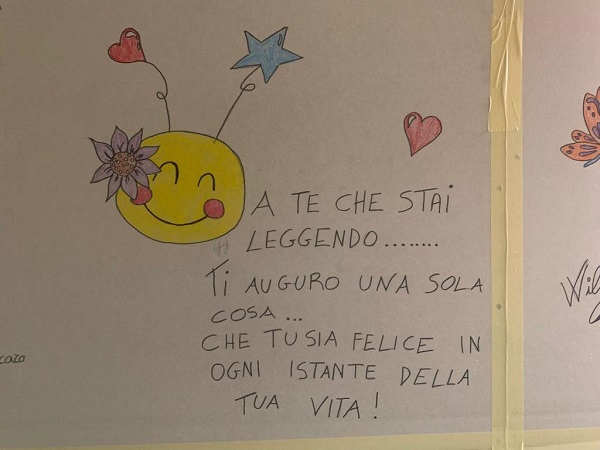 A TE CHE STAi
LEGGENDO........
Ti AUGURO UNA SOLA
COSA...
CHE TU SIA FELICE IN
OGNI ISTANTE DELLA
TUA VITA!